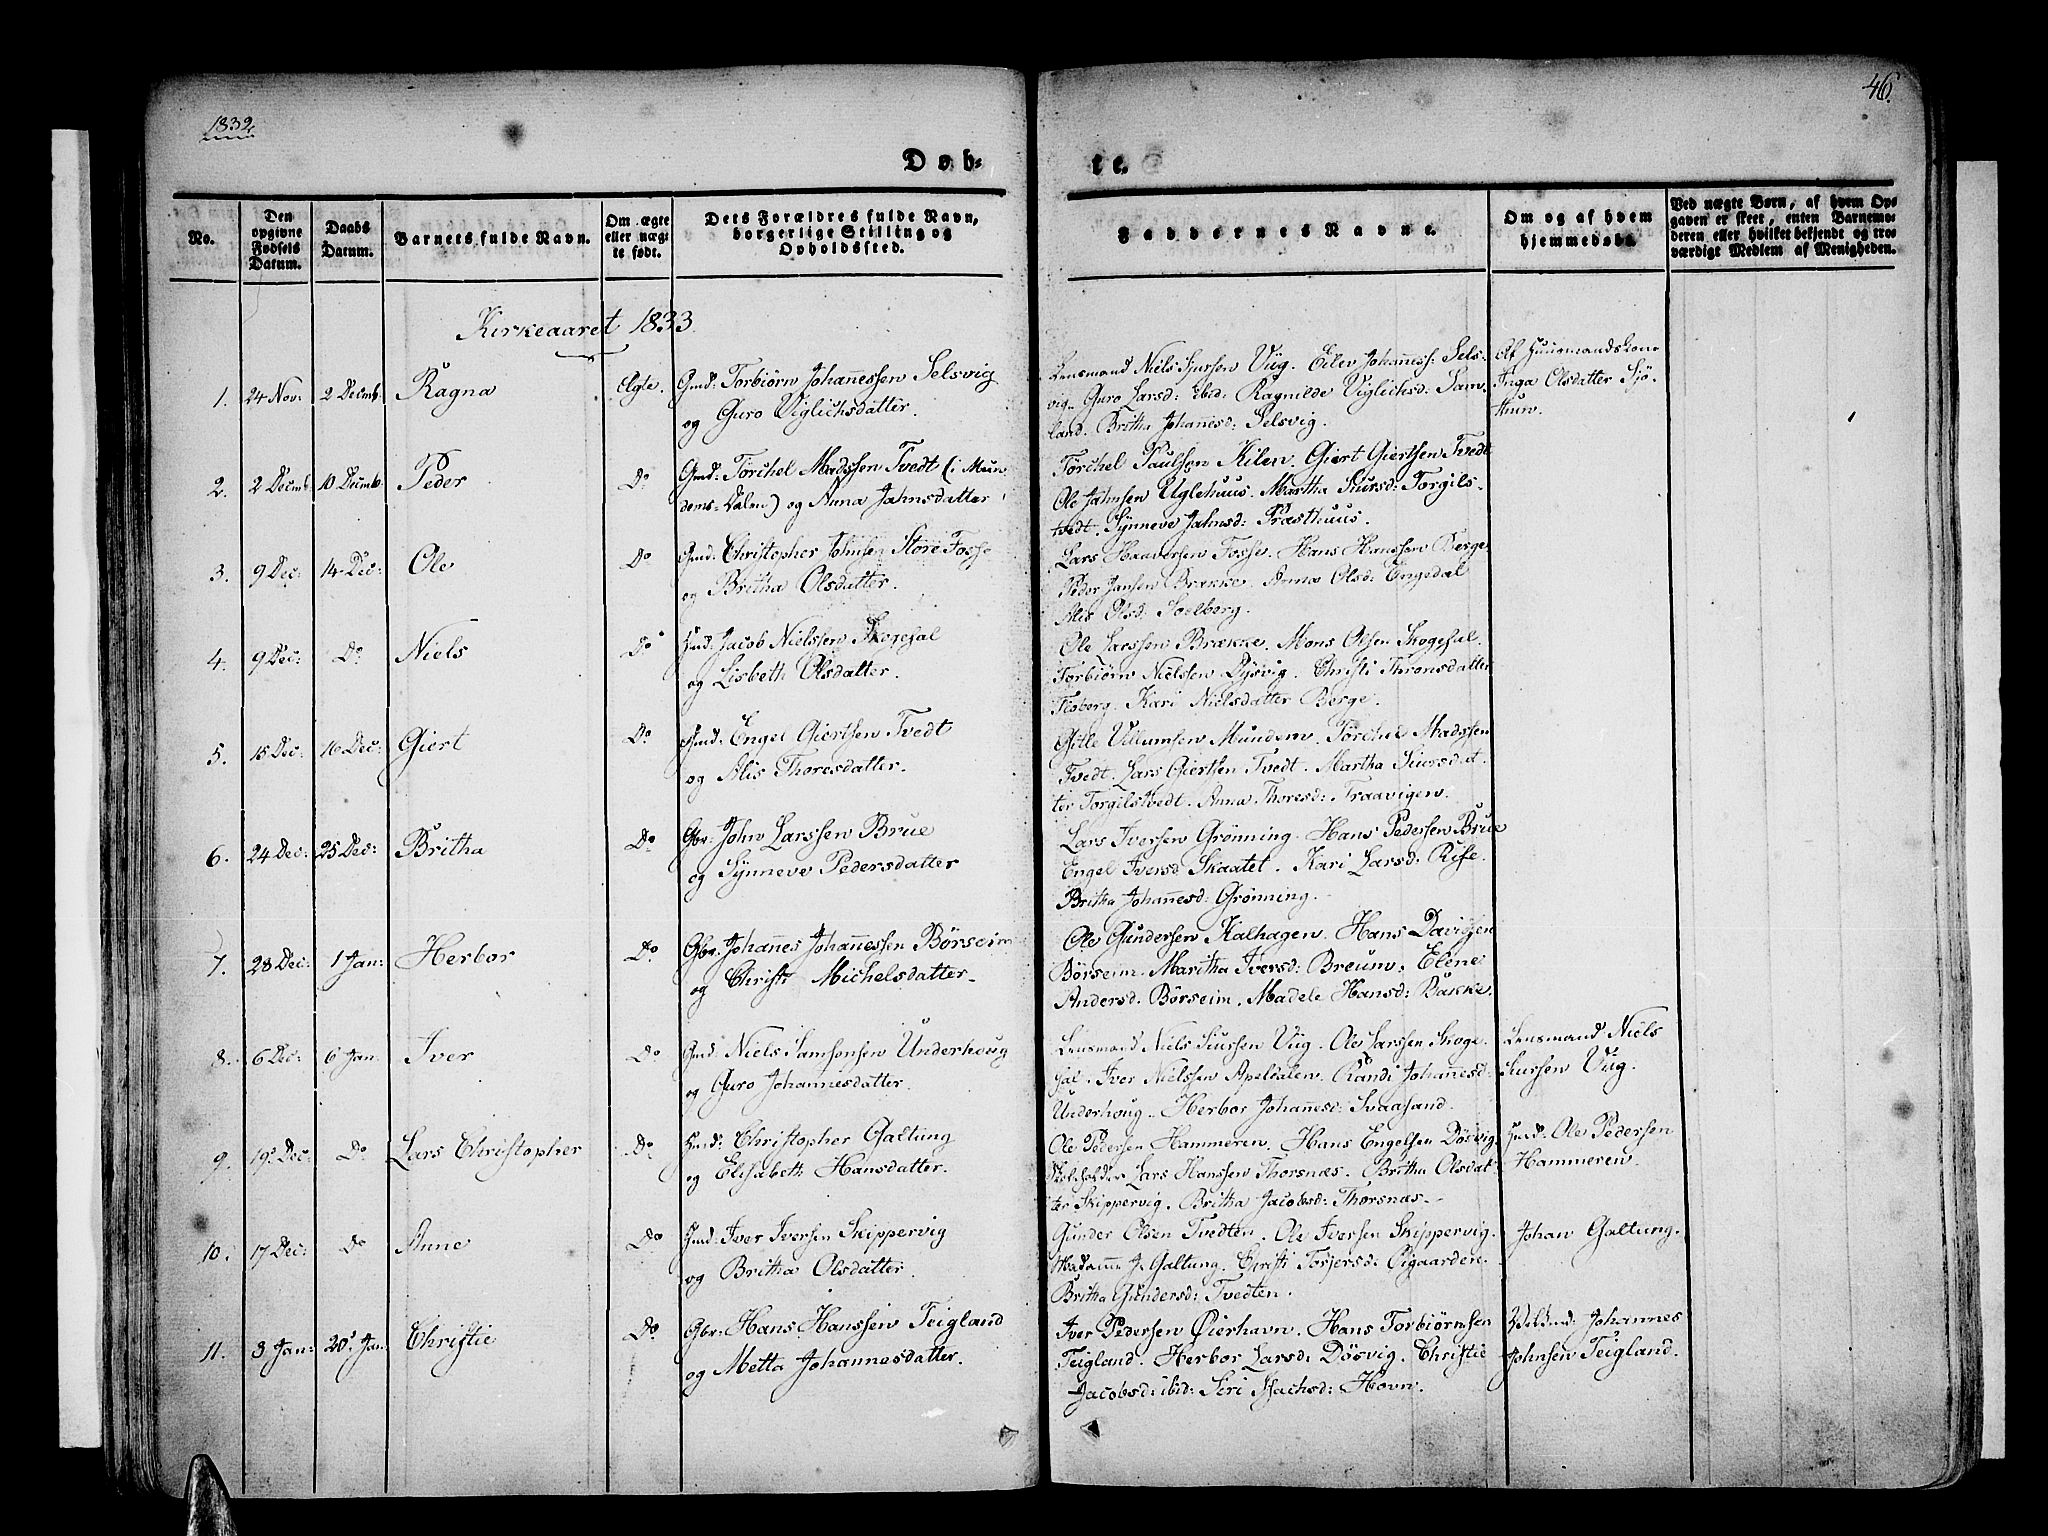 1832
46.
Døb-
te.
No.
Den opgivne Fødsels Datum.
Daabs Datum.
Barnets fulde Navn.
Om ægte eller uægte født.
Dets Forældres fulde Navn, borgerlige Stilling og Opholdssted.
Faddernes Navne.
Om og af hvem hjemmedøbt.
Ved uægte Børn, af hvem Opgaven er skeet, enten Barnemoderen eller hvilket bekjendt og troværdigt Medlem af Menigheden.
Kirkeaaret 1833
1. 24 Nov: 2 Decmb: Ragna Ægte. Gmd: Torbiörn Johannessen Selsvig
og Guro Viglichsdatter.
Lensmand Niels Siursen Viig. Eilev Johanness: Sels-
vig. Guro Larsd: ibid: Ragnilde Viglichsd: Sam-
land. Britha Johannesd: Selsvig.
Af Huusmandskone
Inga Olsdatter Sjö-
thun.
2. 2 Decmb: 10 Decmb: Peder Do Gmd: Törchel Madssen Tvedt (i Mun
dems-Dalen) og Anna Jahnsdatter
Törchel Paulson Kilen. Giert Giertsen Tvedt
Ole Jahnsen Uglehuus. Martha Siursd: Torgils-
tvedt. Synneve Jahnsd: Præsthuus.
3. 9 Dec: 14 Dec: Ole Do Gmd: Christopher Johnsen Store Fosse
og Britha Olsdatter.
Lars Haaversen Fosse. Hans Hanssen Berge
Peder Jansen Brække. Anna Olsd: Engedal
Alis Olsd: Soelberg.
4. 9 Dec: Do Niels Do Hmd: Jacob Nielssen Skogesal
og Lisbeth Olsdatter.
Ole Larssen Brække. Mons Olsen Skogesal.
Torbiörn Nielssen Dysvig. Christi Thronsdatter
Floberg. Kari Nielsdatter Berge.
5. 15 Dec: 16 Dec: Giert Do Gmd: Engel Giertsen Tvedt
og Alis Thoresdatter.
Gitle Villumsen Mundem. Törchel Madssen
Tvedt. Lars Giertsen Tvedt. Martha Siursdat
ter Torgilstvedt. Anna Thoresd: Traavigen.
6. 24 Dec: 25 Dec: Britha Do Gbr: John Larssen Brue
og Synneve Pedersdatter
Lars Iversen Grönning. Hans Pedersen Brue
Engel Iversd Skaatet. Kari Larsd: Rife.
Britha Johannesd: Grönning.
7. 28 Dec: 1 Jan: Herbor Do Gbr: Johannes Johannessen Börseim
og Christi Michelsdatter.
Ole Gundersen Kalhagen. Hans Davidsen
Börseim. Maritha Iversd: Breum. Elene
Andersd. Börseim. Madele Hansd: Bakke.
8. 6 Dec: 6 Jan: Iver Do Gmd: Niels Samsonsen Underhoug
og Guro Johannesdatter.
Lensmand Niels Siursen Viig. Ole Larssen Skoge
sal. Iver Nielssen Apeldalen. Randi Johannesd:
Underhoug. Herbor Johannesd: Svaasand.
Lensmand Niels
Siursen Viig.
9. 19 Dec: Do Lars Christopher Do Hmd: Christopher Galtung
og Elisabeth Hansdatter.
Ole Pedersen Hammeren. Hans Engelsen Dösvig.
Skoleholder Lars Hanssen Thorsnæs. Britha Olsdat
ter Skippervig. Britha Jacobsd: Thorsnæs.
Hmd: Ole Pedersen
Hammeren.
10. 17 Dec: Do Anne Do Hmd: Iver Iversen Skippervig
og Britha Olsdatter.
Gunder Olsen Tvedten. Ole Iversen Skippervig.
Madamme J. Galtung. Christi Torjersd: Oigaarden.
Britha Gundersd: Tvedten.
Johan Galtung.
11. 3 Jan: 20 Jan Christie Do Gbr: Hans Hanssen Teigland
og Metta Johannesdatter.
Iver Pedersen Oierhavn. Hans Torbiörnsen
Teigland. Herbor Larsd: Dösvig. Christie
Jacobsd: ibid: Siri Isachsd: Hovn.
Johannes
Johnsen Teigland.